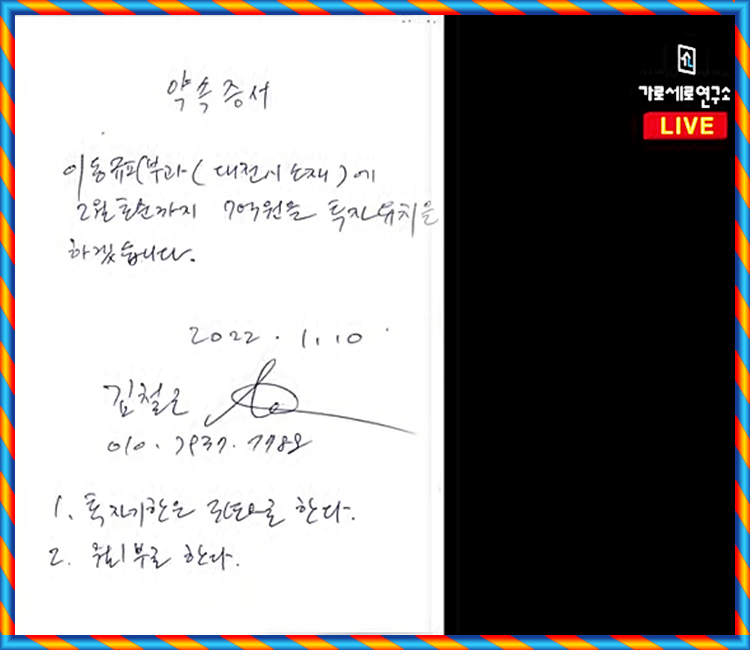 약속증서
이동규피부과(대전시 소재)에
2월 초순까지 7억원을 투자유치를
하겠습니다.
2022. 1. 10
김철근
010.
1. 투자기한은 로 한다.
2. 부로 한다.
가로세로연구소
LIVE